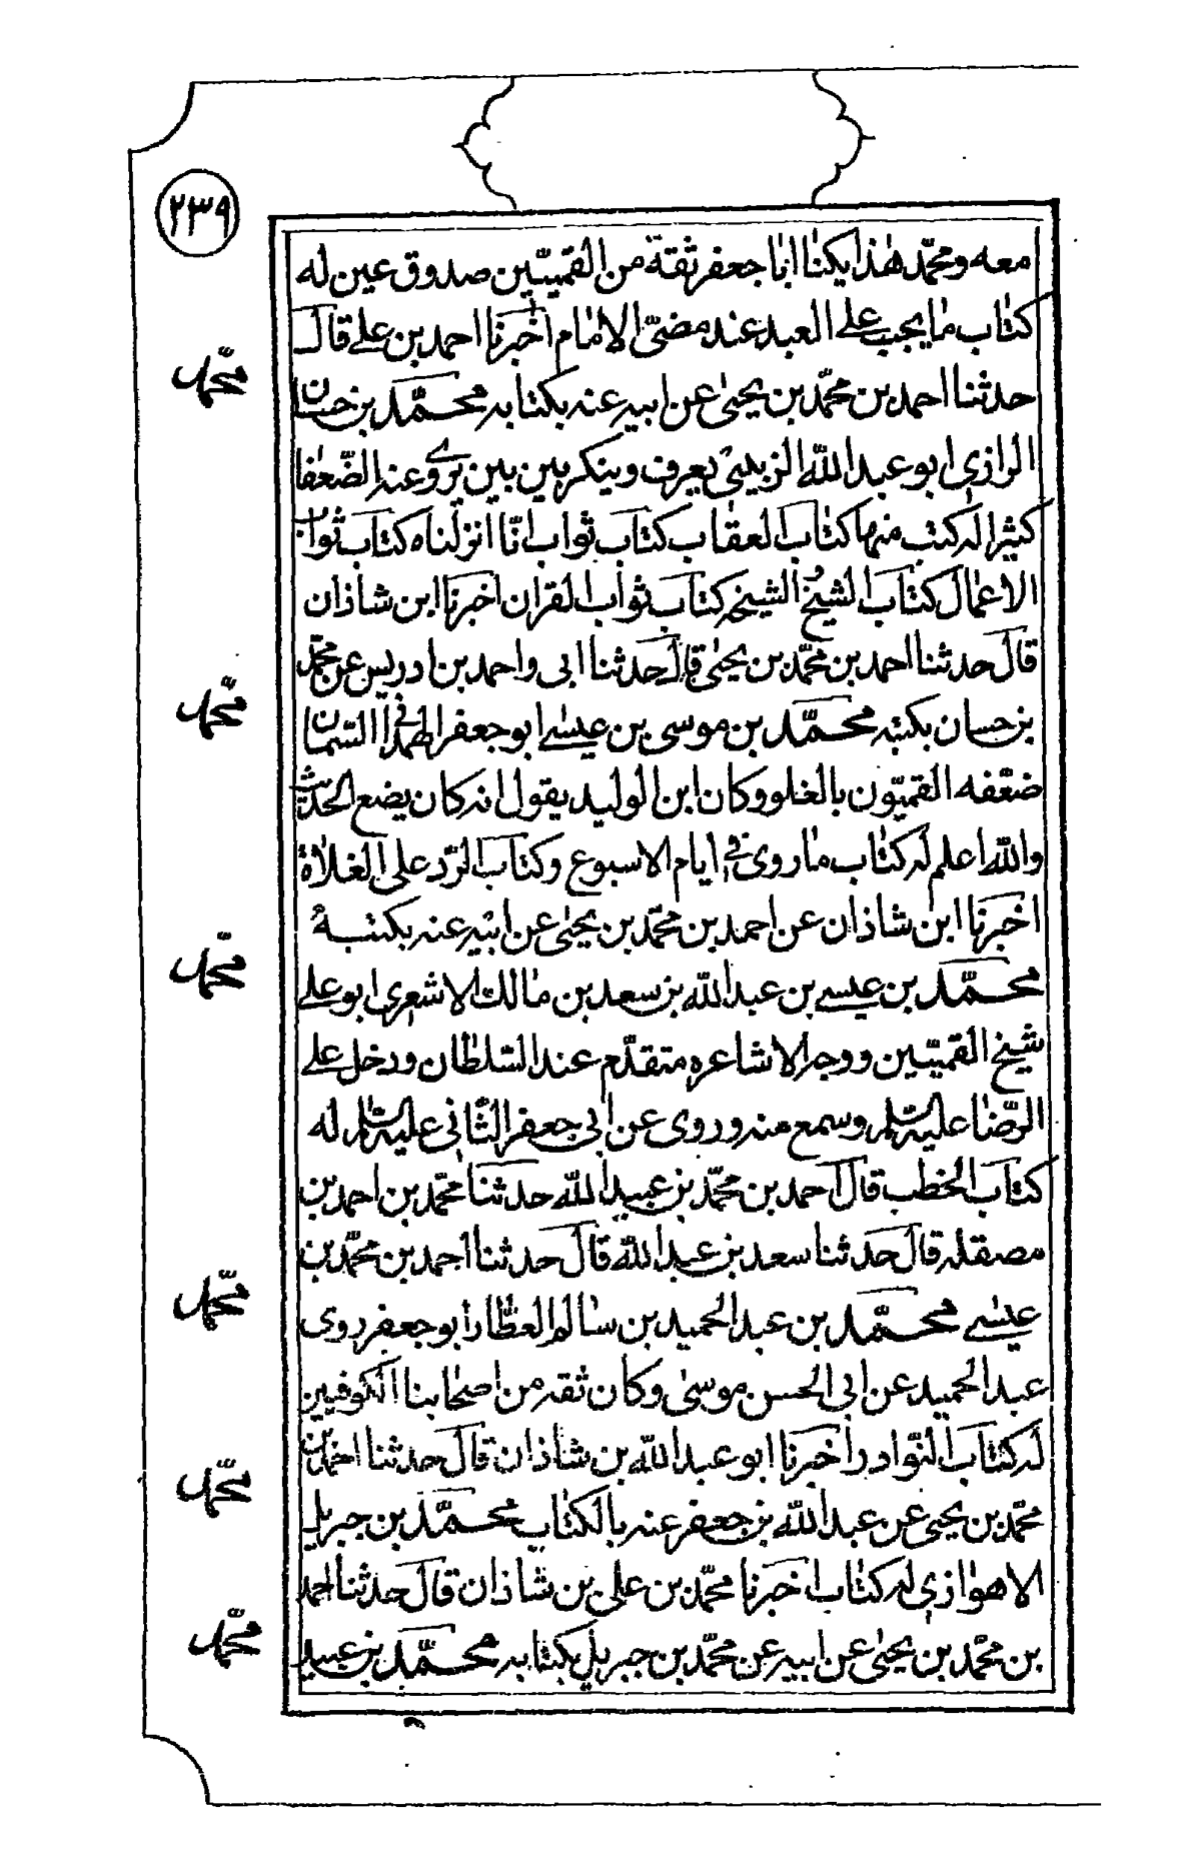 ٢٣٩
معه ومحمّد هٰذا يكنٰا ابٰا جعفر ثقة من القميّين صدوق عين له
كتٰاب مٰا يجب على العبد عند مضىّ الامٰام أخبرنٰا احمد بن على قال
محمّد
حدثنا احمد بن محمّد بن يحيىٰ عن ابيه عنه بكتابه محمّد بن حسان
الرازى ابو عبد اللّٰه الزبيبى يعرف وينكر بين بين يروى عنه الضّعفٰا
كثيرا له كتب منها كتٰاب العقٰاب كتاب ثواب انّا انزلناه كتاب ثواب
الاعمٰال كتٰاب الشيخ والشيخه كتاب ثواب القران اخبرنا ابن شاذان
قال حدثنا احمد بن محمّد بن يحيىٰ قال حدثنا ابى واحمد بن ادريس عن محمّد
محمّد
بن حسان بكتبه محمّد بن موسى بن عيسٰى ابو جعفر الهمدانى السّمان
ضعّفه القميّون بالغلو وكان ابن الوليد يقول انه كان يضع الحديث
واللّٰه اعلم له كتٰاب مٰا روى فى ايام الاسبوع وكتاب الرّد على الغلٰاة
اخبرنا ابن شاذان عن احمد بن محمّد بن يحيىٰ عن ابيه عنه بكتبه
محمّد
محمّد بن عيسى بن عبد اللّٰه بن سعد بن مٰالك الاشعرى ابو على
شيخ القميّين ووجه الاشاعره متقدّم عند السّلطٰان ودخل على
الرّضٰا عليه السّلم وسمع منه وروى عن ابى جعفر الثّانى عليه السّلم له
كتاب الخطب قال احمد بن محمّد بن عبيد اللّٰه حدثنا محمّد بن احمد بن
مصقله قال حدثنا سعد بن عبد اللّٰه قال حدثنا احمد بن محمّد بن
محمّد
عيسٰى محمّد بن عبد الحميد بن سٰالم العطّار أبو جعفر روى
عبد الحميد عن ابى الحسن موسىٰ وكان ثقه من اصحٰابنا الكوفيين
له كتاب النّوادر أخبرنا ابو عبد اللّٰه بن شاذان قال حدثنا احمد بن
محمّد
محمّد بن يحيىٰ عن عبد اللّٰه بن جعفر عنه بالكتٰاب محمّد بن جبريل
الاهوٰازى له كتٰاب اخبرنا محمّد بن على بن شاذان قال حدثنا احمد
محمّد
بن محمّد بن يحيىٰ عن ابيه عن محمّد بن جبريل بكتابه محمّد بن عبيد